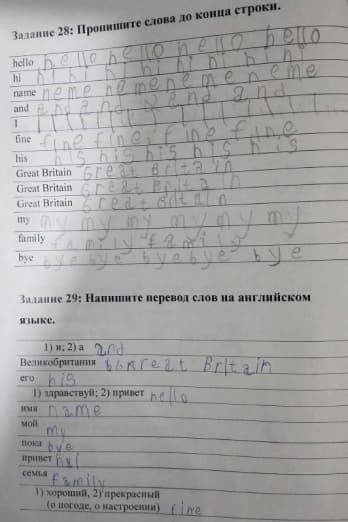 Задание 28: Пропишите слова до конца строки.
hello hello hello hello hello
hi hi hi hi hi hi hi
name neme nemeneme neme
and and and and and
I I I I I I I I I
fine fine fine, fine fine
his his his his his his
Great Britain Great Britain
Great Britain Great Britain
Great Britain Great Britain
my my my my my my my
family family family
bye bye bye bye bye bye
Задание 29: Напишите перевод слов на английском
языке.
1) и; 2) а and
Великобритания Great Britain
его his
1) здравствуй; 2) привет hello
имя name
мой my
пока bye
привет hi
семья family
1) хороший, 2) прекрасный
(о погоде, о настроении) fine